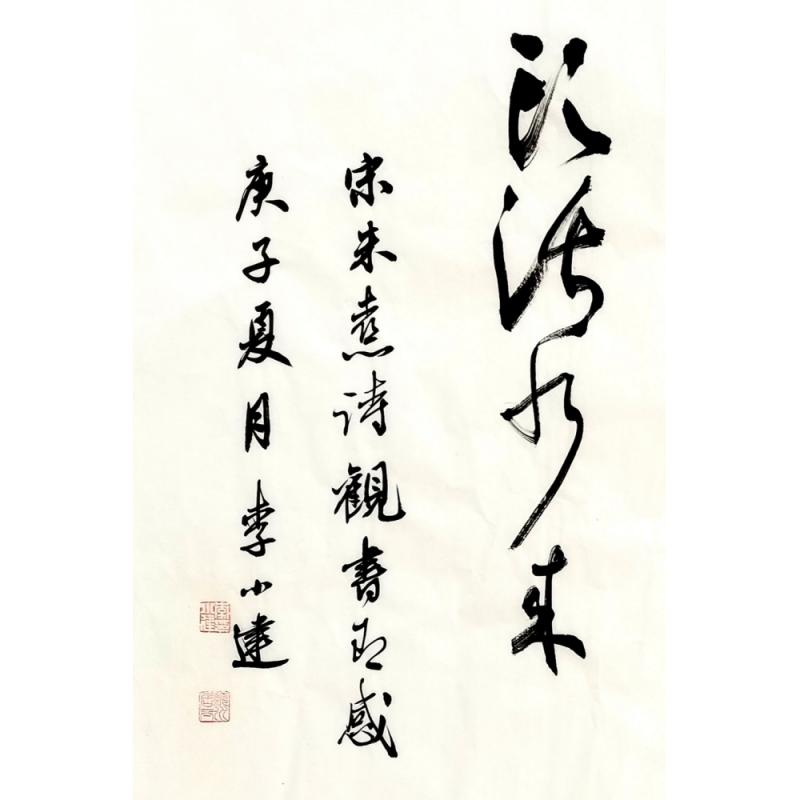 頭活水来
宋朱熹詩觀書有感
庚子夏月李小建